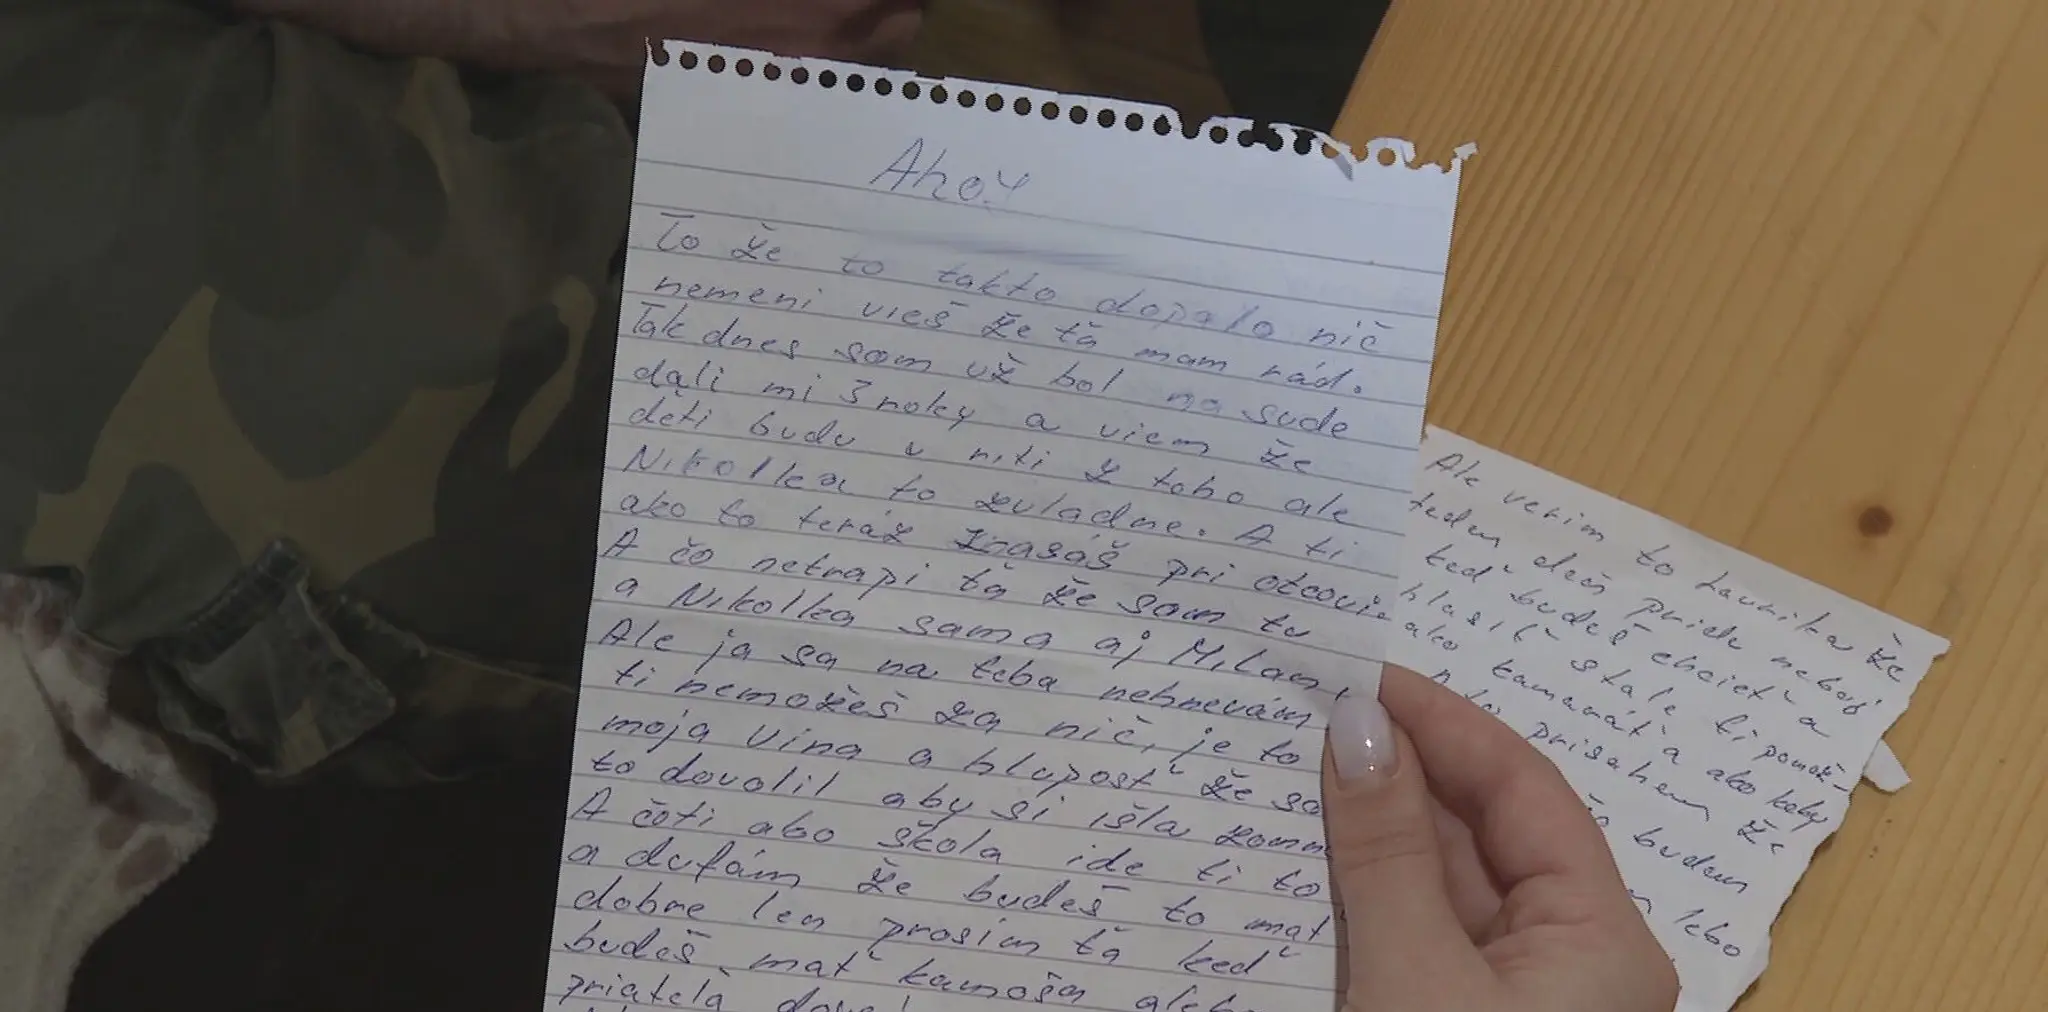 Ahoy
To že to takto dopalo nič
nemeni vieš že ťa mam rád.
Tak dnes som už bol na sude
dali mi 3 roky a viem že
deti budu v riti z toho ale
Nikolka to zvladne. A ti
ako to teráz znasáš pri otcovi
A čo netrapi ťa že som tu
a Nikolka sama aj Milan,
Ale ja sa na teba nehnevám
ti nemožeš za nič, je to
moja vina a hluposť že so
to dovolil aby si išla
A čoti abo škola ide ti to
a dufám že budeš to mať
dobre len prosim ťa keď
budeš mať kamoša aleb
priatelà
Ale verim to Laurika že
teden deň pride neboj
keď budeš chcieť a
hlasiť stale ti pomož-
ako kamarát a ako keby
prisahem že
budem
lebo